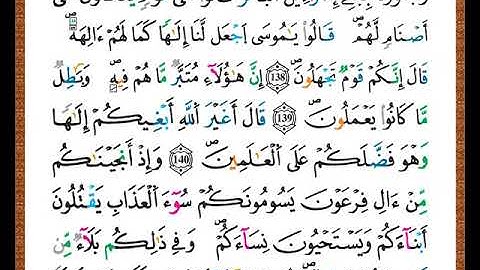 أَصْنَامٍ لَّهُمْ ۚ قَالُوا۟ يَٰمُوسَى ٱجْعَل لَّنَآ إِلَٰهًا كَمَا لَهُمْ ءَالِهَةٌ ۚ
قَالَ إِنَّكُمْ قَوْمٌ تَجْهَلُونَ ۝١٣٨ إِنَّ هَٰٓؤُلَآءِ مُتَبَّرٌ مَّا هُمْ فِيهِ وَبَٰطِلٌ
مَّا كَانُوا۟ يَعْمَلُونَ ۝١٣٩ قَالَ أَغَيْرَ ٱللَّهِ أَبْغِيكُمْ إِلَٰهًا
وَهُوَ فَضَّلَكُمْ عَلَى ٱلْعَٰلَمِينَ ۝١٤٠ وَإِذْ أَنجَيْنَٰكُم
مِّنْ ءَالِ فِرْعَوْنَ يَسُومُونَكُمْ سُوٓءَ ٱلْعَذَابِ يَقْتُلُونَ
أَبْنَآءَكُمْ وَيَسْتَحْيُونَ نِسَآءَكُمْ ۚ وَفِى ذَٰلِكُم بَلَآءٌ مِّن